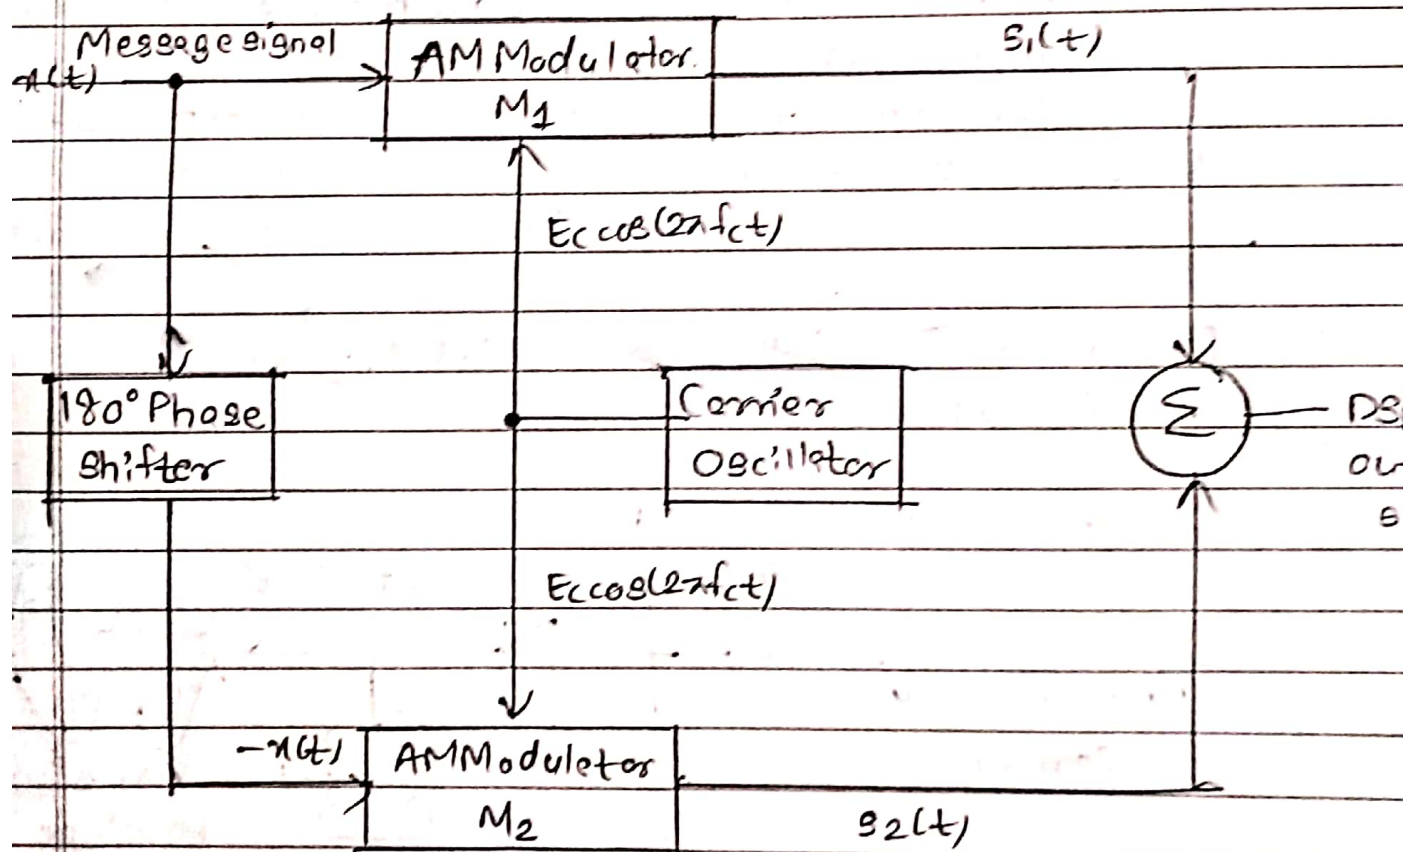 Message signal
x(t)
AM Modulator
M1
S1(t)
Ec cos(2πfct)
180° Phase
Shifter
Carrier
Oscillator
Σ
DS
ou
s
Ec cos(2πfct)
-x(t)
AM Modulator
M2
S2(t)